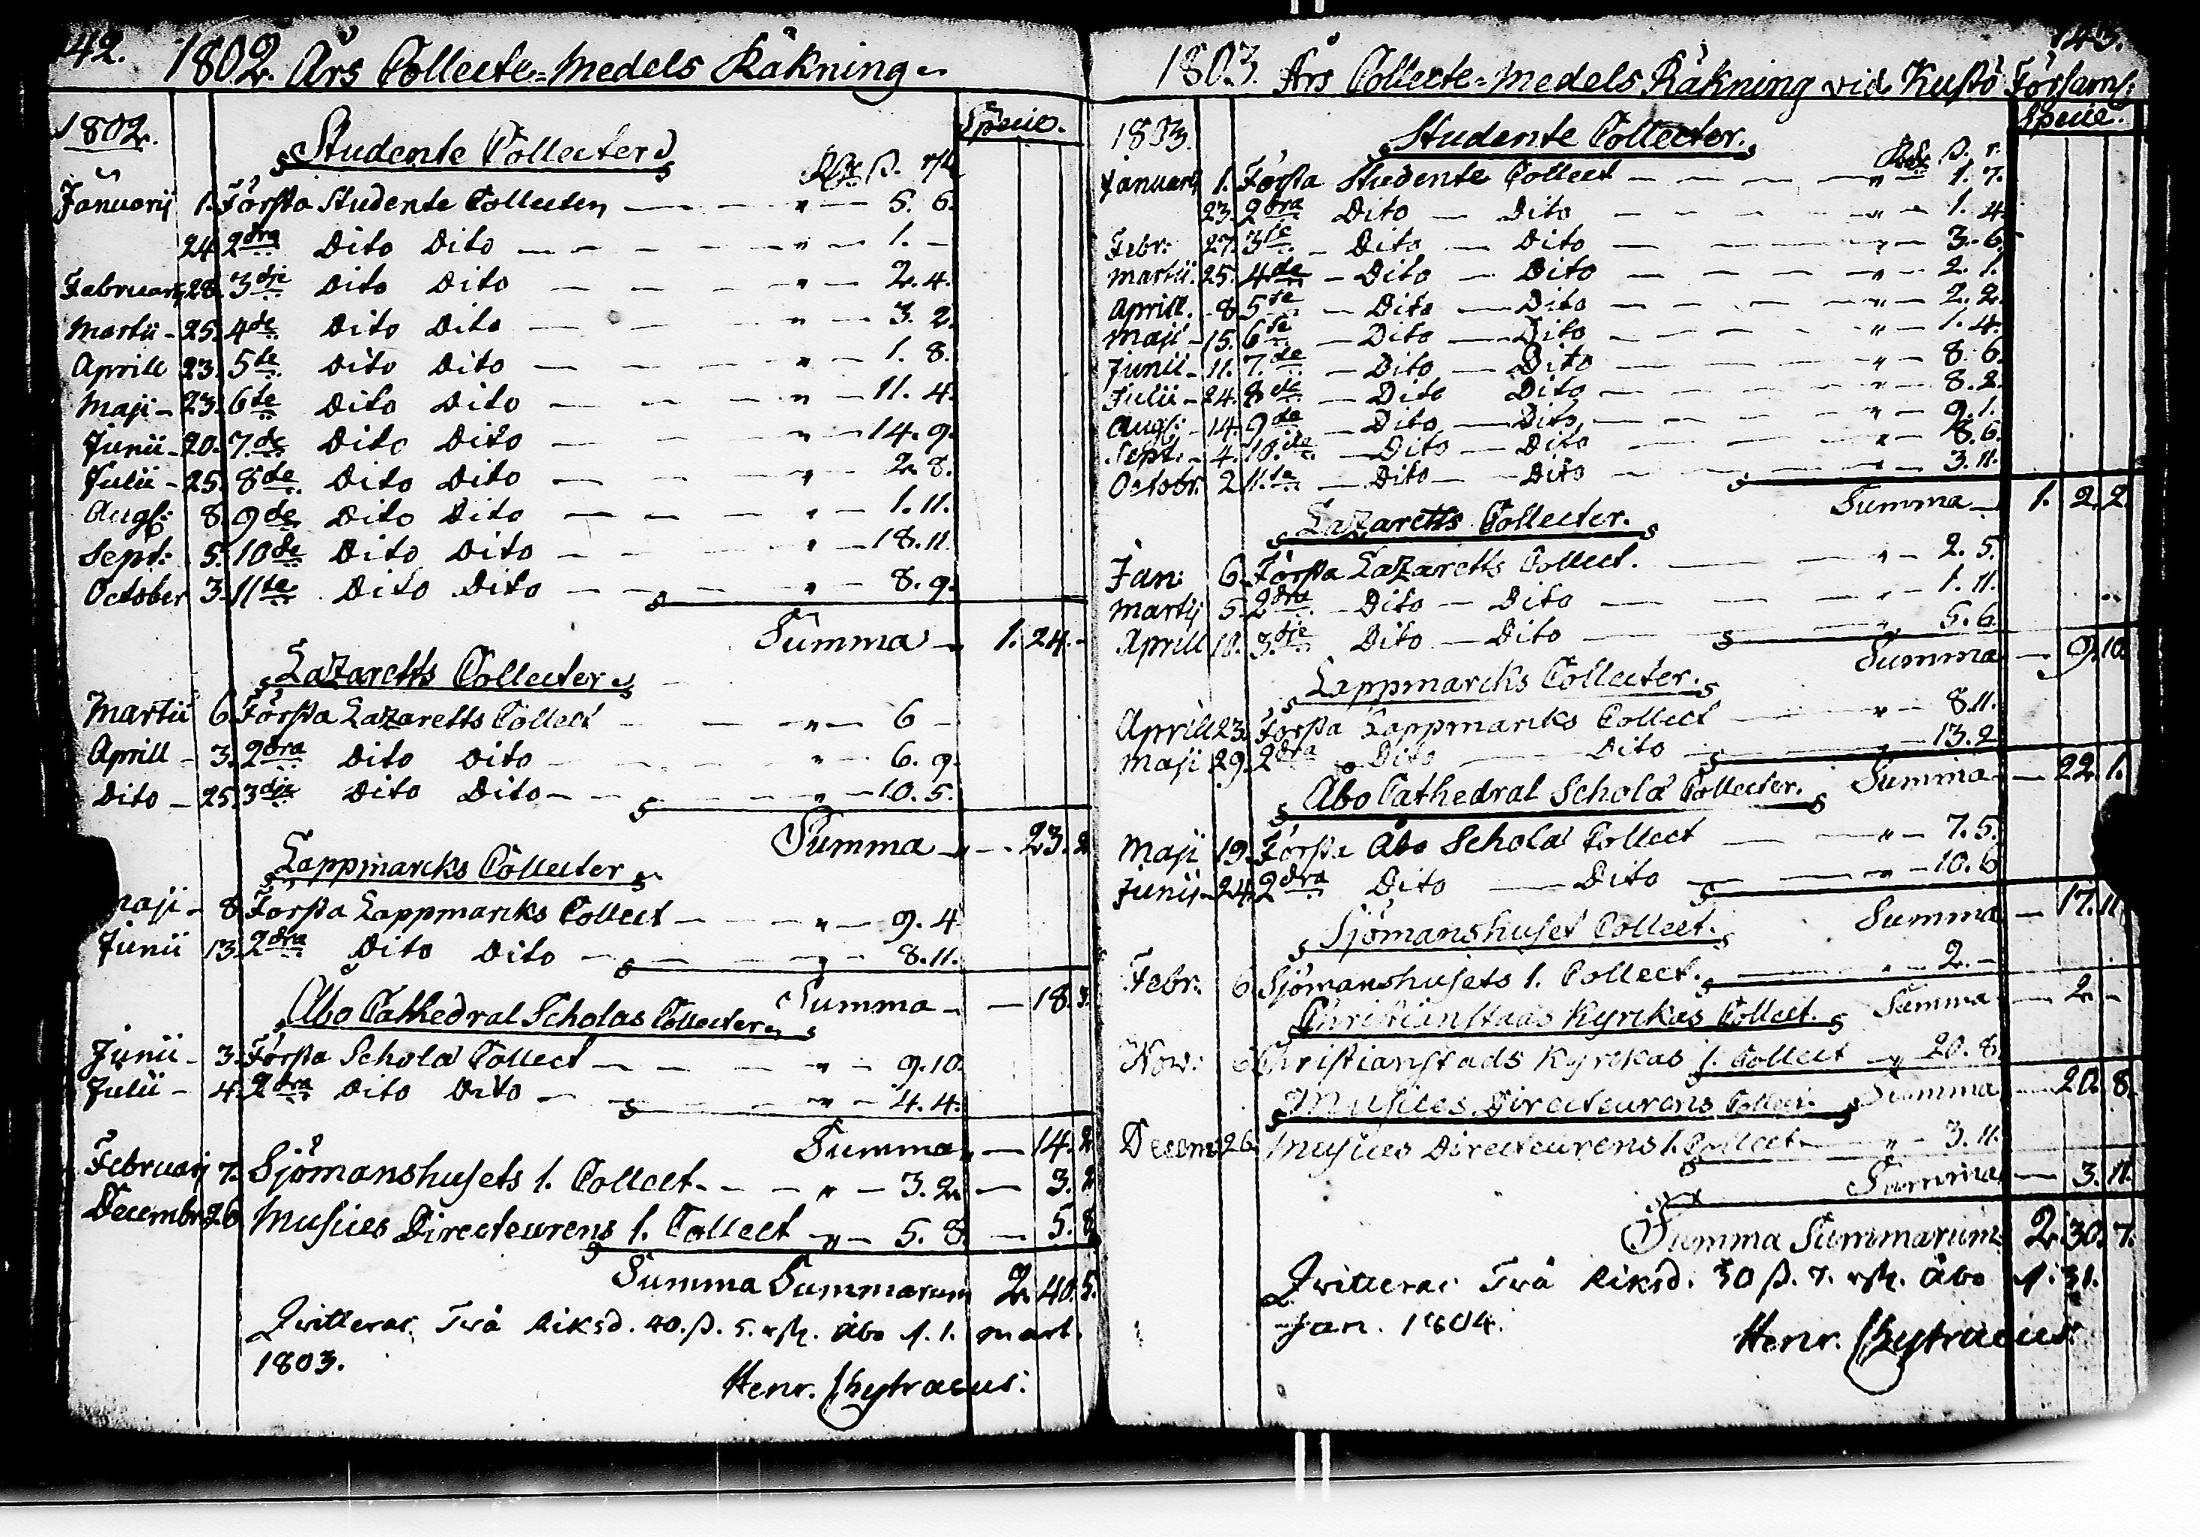 42. 1802. Års Collecte-Medels Räkning
1802. Specie.
Studente Collecter
Rdr ß. rst.
Januarij 1. Första Studente Collecten — — " — 5. 6.
24 2dra Dito Dito — — — " — 1. —
Februarij 28. 3dje Dito Dito — — — " — 2. 4.
Martii - 25. 4de Dito Dito — — — " — 3. 2.
Aprill 23. 5te Dito Dito — — — " — 1. 8.
Maji - 23. 6te Dito Dito — — — " — 11. 4.
Junii - 20. 7de Dito Dito — — — " — 14. 9.
Julii - 25. 8de Dito Dito — — — " — 2. 8.
Augs: 8. 9de Dito Dito — — — " — 1. 11.
Sept: 5. 10de Dito Dito — — — " — 18. 11.
October 3. 11te Dito Dito — — — " — 8. 9.
Summa — 1. 24. -
Lazaretts Collecter
Martii 6. Första Lazaretts Collect — — " — 6 —
Aprill - 3. 2dra Dito Dito — — — " — 6. 9.
Dito - 25. 3dje Dito Dito — — — " — 10. 5.
Summa — — 23. 2
Lappmarcks Collecter
Maji - 8. Första Lappmarcks Collect — — — " — 9. 4
Junii 13. 2dra Dito Dito — — — " — 8. 11.
Summa — — 18. 3.
Åbo Cathedral Scholas Collecter
Junii - 3. Första Schola Collect — — — " — 9. 10.
Julii - 4. 2dra Dito Dito — — — " — 4. 4.
Summa — 14. 2
Februarij 7. Sjömanshusets 1. Collect. — — " — 3. 2. — 3. 2
Decembr 26. Musices Directeurens 1. Collect " — 5. 8. — 5. 8
Summa Summarum 2. 40. 5.
Qvitteras Två Riksd. 40. ß. 5. rst. Åbo d. 1. Mart.
1803.
Henr. Chytraeus.
143.
1803. Års Collecte-Medels Räkning vid Kustö Församl:
1803. Specie.
Studente Collecter.
Rdr ß. r.
Januarij 1. Första Studente Collect — — — " — 1. 7.
23. 2dra Dito — Dito — — — " — 1. 4.
Febr: 27. 3je — Dito — Dito — — — " — 3. 6.
Martii. 25. 4de — Dito — Dito — — — " — 2. 1.
Aprill. - 8 5te — Dito — Dito — — — " — 2. 2.
Maji - 15. 6te — Dito — Dito — — — " — 1. 4.
Junii - 11. 7.de — Dito — Dito — — — " — 8. 6.
Julii - 24. 8de — Dito Dito — — — " — 8. 2.
Augs: - 14. 9de — Dito — Dito — — — " — 9. 1.
Sept. - 4. 10.de — Dito — Dito — — — " — 8. 6.
Octobr: 2. 11.te — Dito — Dito — — — " — 3. 11.
Summa — 1. 2. 2.
Lazaretts Collecter.
Jan: 6. Första Lazaretts Collect. — — " — 2. 5.
Martij 5. 2dra — Dito — Dito — — " — 1. 11.
Aprill 10. 3.dje Dito — Dito — — " 5. 6.
Summa — 9. 10.
Lappmarcks Collecter.
Aprill 23. Första Lappmarcks Collect — — " — 8. 11.
Maji 29. 2dra Dito — Dito — — 13. 2
Summa — 22. 1.
Åbo Cathedral Schola Collecter.
Maji 19. Första Åbo Schola Collect — — " — 7. 5.
Junij - 24. 2dra Dito — Dito — — " — 10. 6
Summa — 17. 11
Sjömanshuset Collect.
Febr: 6. Sjömanshusets 1. Collect. — " — 2. —
Summa — 2. -
Christianstads Kyrckas Collect.
Nov: 6 Christianstads Kyrckas 1. Collect — " 20. 8.
Summa — 20. 8.
Musices Directeurens Collect.
Decem: 26. Musices Directeurens 1. Collect — " — 3. 11.
Summa — 3. 11.
Summa Summarum 2. 30. 7.
Qvitteras Två Riksd. 30 ß. 7. rst. Åbo d. 31.
Jan. 1804.
Henr. Chytraeus.